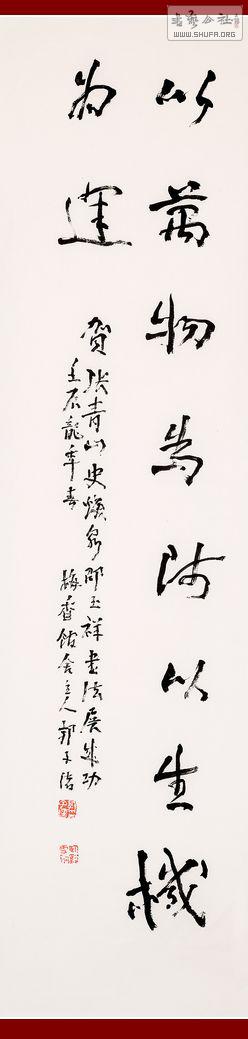 以萬物為師以生機
為運
賀張青山史煥泉邵玉祥書法展成功
壬辰龍年春
梅香館舍主人郭子緒
书艺公社
WWW.SHUFA.ORG